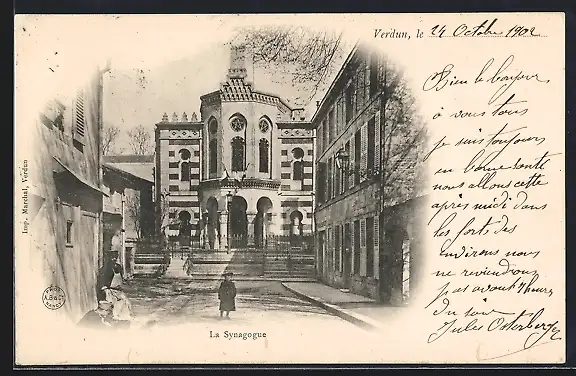 Verdun, le 24 Octobre 1902
Bien le bonjour
à vous tous
je suis toujours
en bonne santé
nous allons cette
après midi dans
les forts des
environs nous
ne reviendrons
pas avant 7 heures
du soir
Jules Osterberger
Imp. Marchal, Verdun
A.B & C
NANCY
La Synagogue